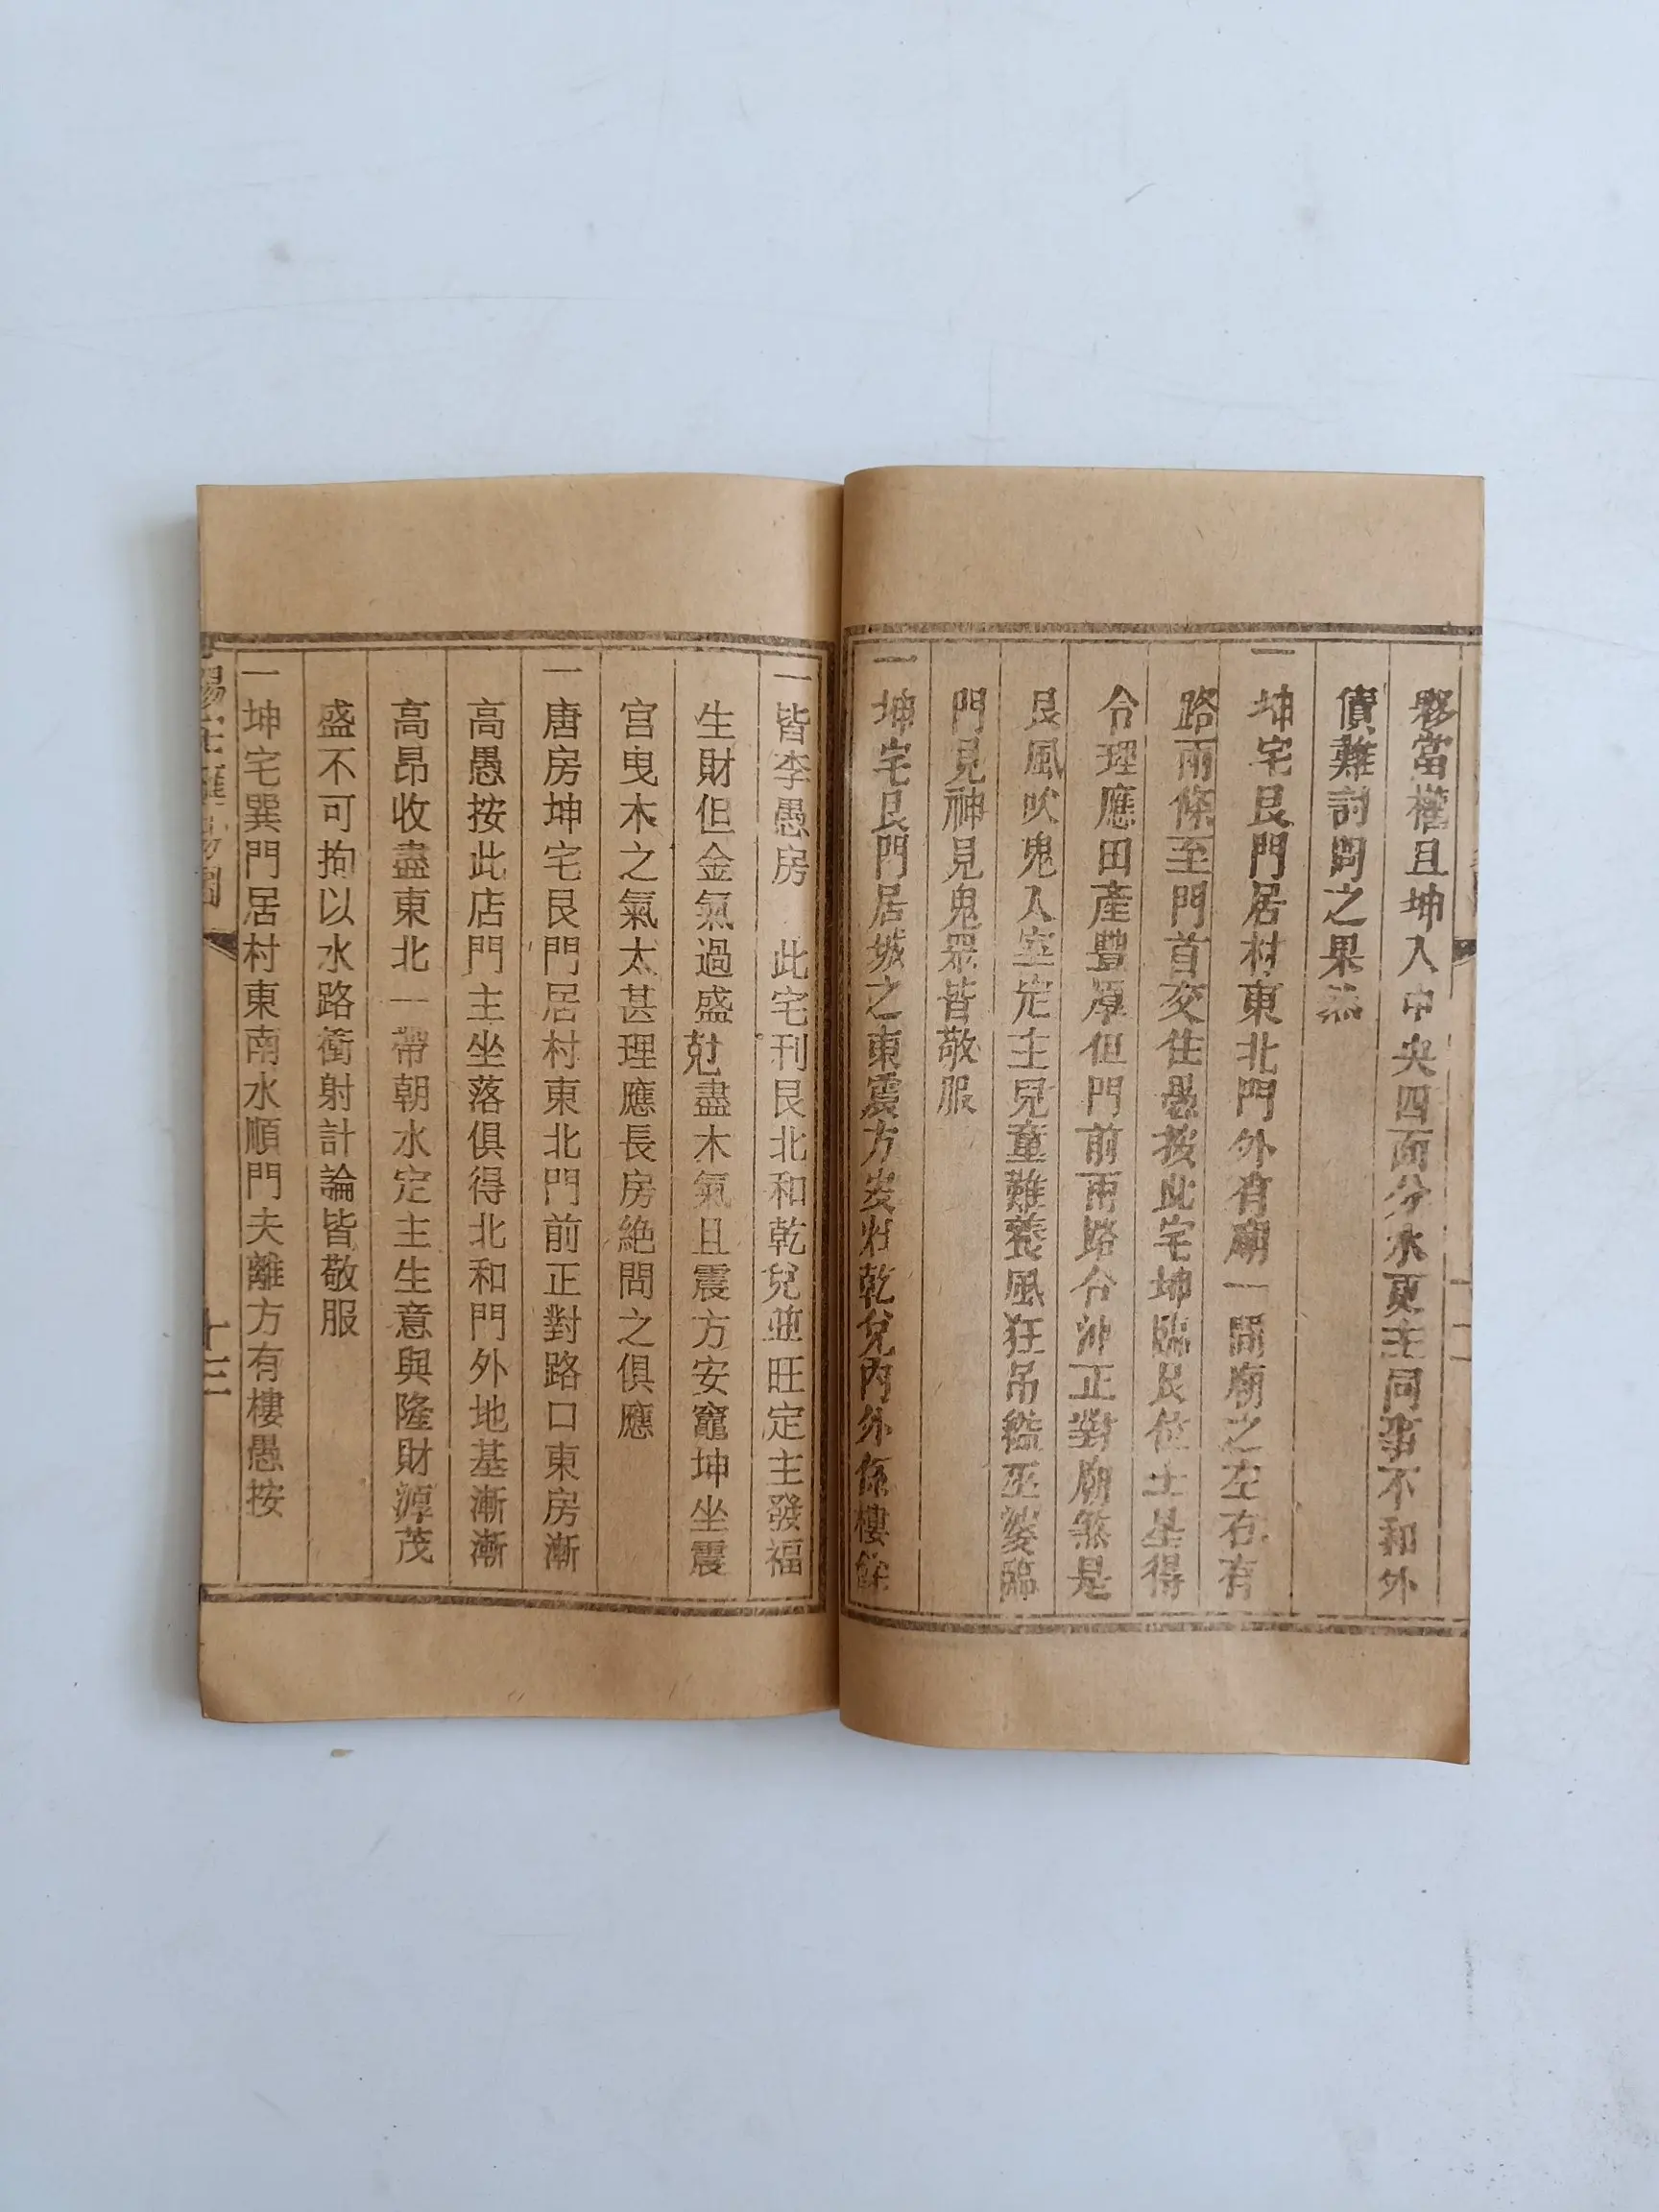 夥當權且坤入中央四面分水更主同事不和外
債難討問之果然
一坤宅艮門居村東北門外有廟一間廟之左右有
路兩條至門首交住愚按此宅坤臨艮位土星得
令理應田產豐厚但門前兩路合沖正對廟煞是
艮風吹鬼入室定主兒童難養風狂吊縊巫婆臨
門見神見鬼眾皆敬服
一坤宅艮門居城之東震方安灶乾兌內外俱樓
一皆李愚房 此宅刊艮北和乾兌並旺定主發福
生財但金氣過盛尅盡木氣且震方安竈坤坐震
宮曳木之氣太甚理應長房絶問之俱應
一唐房坤宅艮門居村東北門前正對路口東房漸
高愚按此店門主坐落俱得北和門外地基漸漸
高昂收盡東北一帶朝水定主生意與隆財源茂
盛不可拘以水路衝射計論皆敬服
一坤宅巽門居村東南水順門夫離方有樓愚按
十三